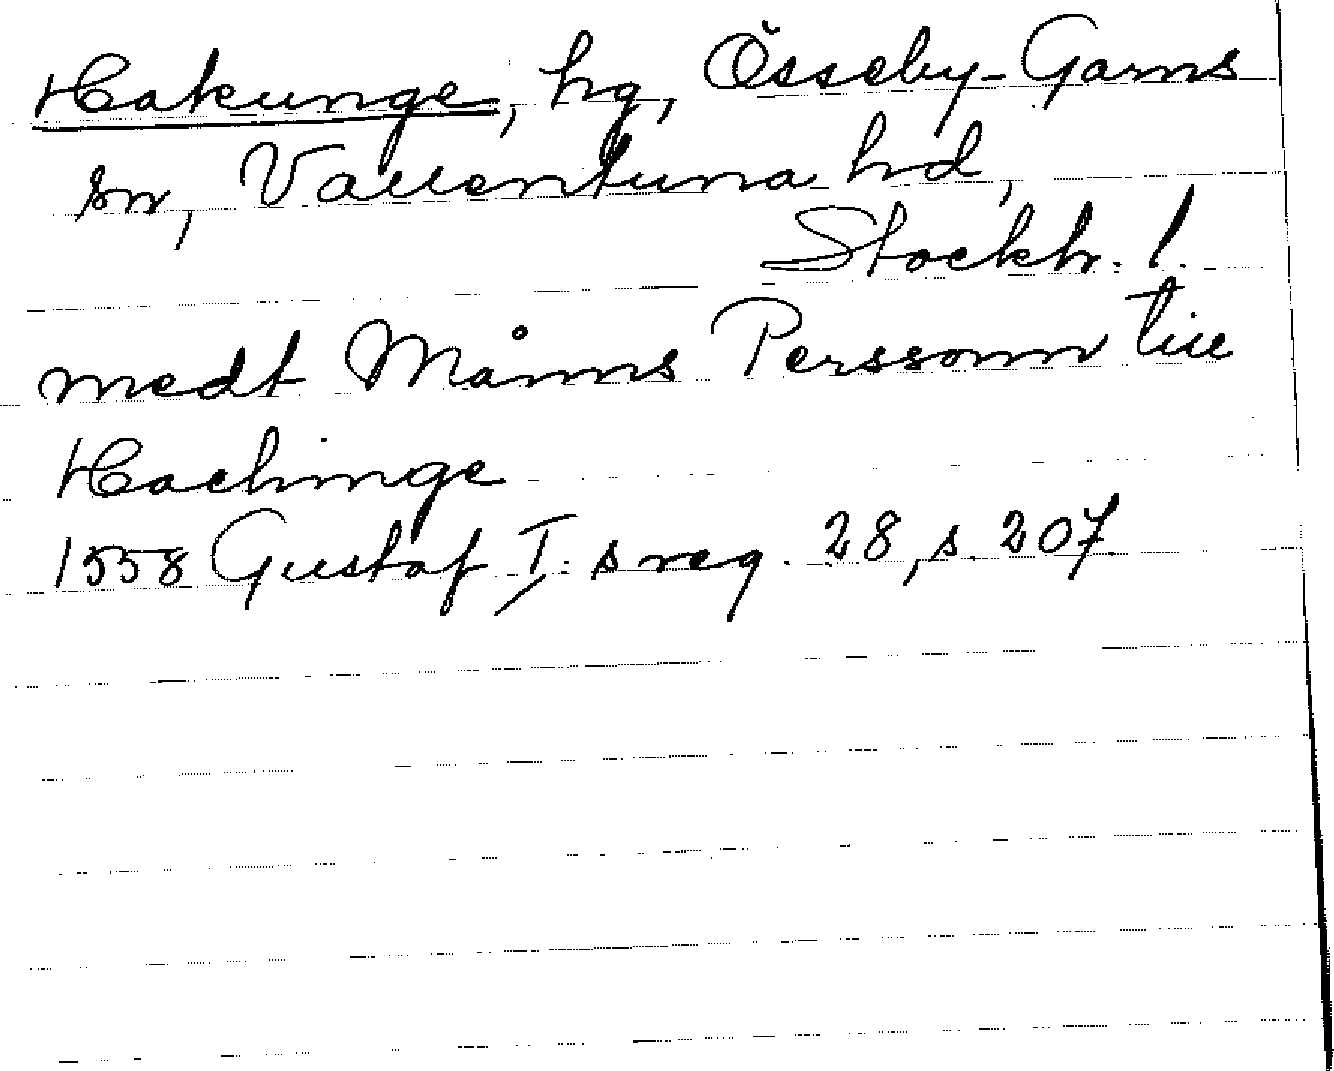 Hakunge, hg, Össeby-Garns
sn, Vallentuna hd,
Stockh. l.
medt Måns Perssonn till
Hachinge
1558 Gustaf I:s reg. 28, s. 207